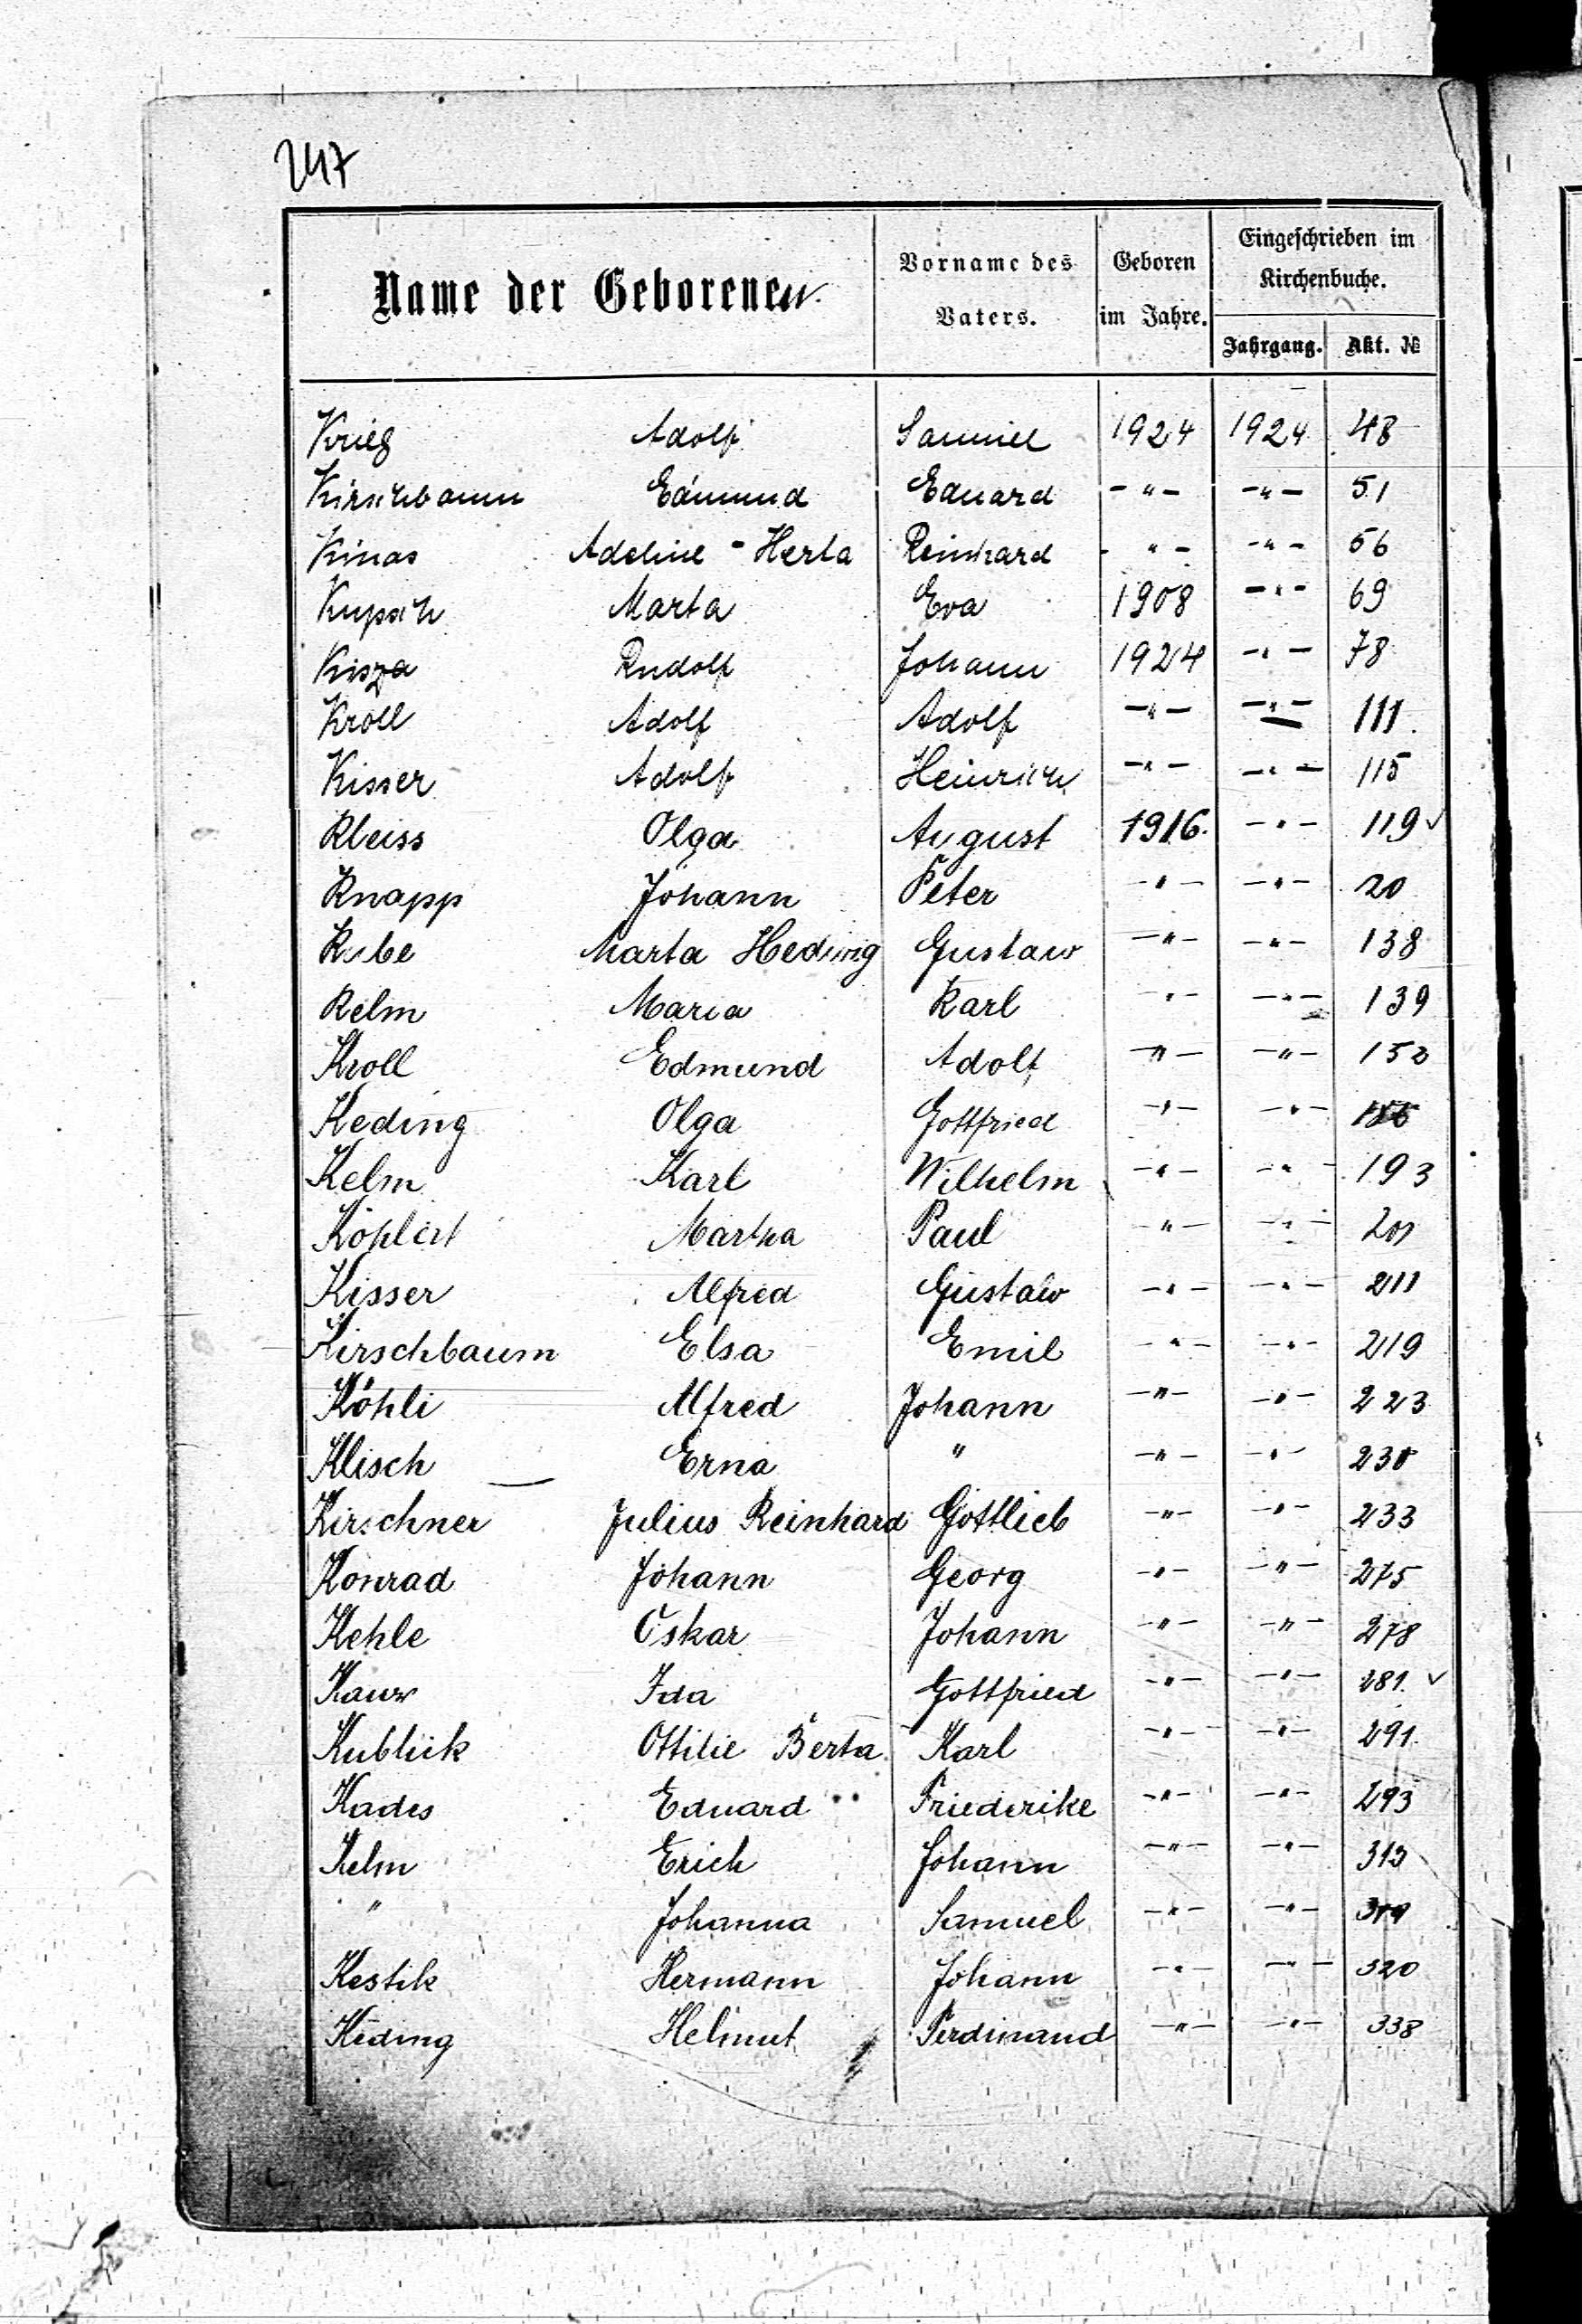 247
Name der Geborenen.
Vorname des Vaters.
Geboren im Jahre.
Eingeschrieben im Kirchenbuche.
Jahrgang. Akt. №
Krieg Adolf Samuel 1924 1924 48
Kirschbaum Edmund Eduard -"- -"- 51
Kinas Adeline - Herta Reinhard -"- -"- 56
Kupsch Marta Eva 1908 -"- 69
Kisza Rudolf Johann 1924 -"- 78
Kroll Adolf Adolf -"- -"- 111.
Kisser Adolf Heinrich -"- -"- 115
Kleiss Olga August 1916. -"- 119 ✓
Knapp Johann Peter -"- -"- 20
Kube Marta Hedwig Gustaw -"- -"- 138
Kelm Maria Karl -"- -"- 139
Kroll Edmund Adolf -"- -"- 152
Keding Olga Gottfried -"- -"-
Kelm Karl Wilhelm -"- -"- 193
Martha Paul -"- -"-
Kisser Alfred Gustaw -"- -"- 211
Kirschbaum Elsa Emil -"- -"- 219
Köhli Alfred Johann -"- -"- 223
Klisch Erna " -"- -"- 230
Kirschner Julius Reinhard Gottlieb -"- -"- 233
Konrad Johann Georg -"- -"- 275
Kehle Oskar Johann -"- -"- 278
Ida Gottfried -"- -"- 281. ✓
Kublick Ottilie Berta Karl -"- -"- 291.
Kades Eduard Friederike -"- -"- 293
Kelm Erich Johann -"- -"- 313
" Johanna Samuel -"- -"- 319
Kestik Hermann Johann -"- -"- 320
Keding Helmut Ferdinand -"- -"- 338